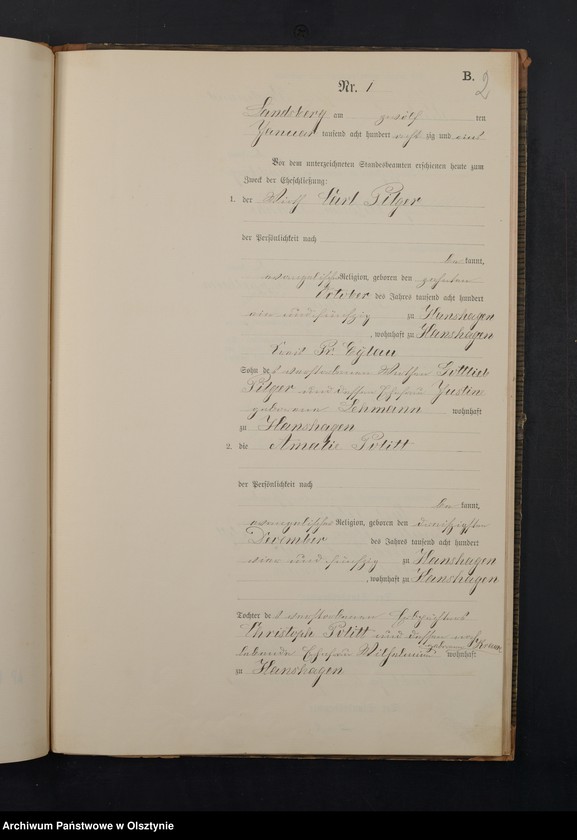 B. 2
Nr. 1
Landsberg am zwölf ten
Januar tausend acht hundert acht zig und eins
Vor dem unterzeichneten Standesbeamten erschienen heute zum
Zweck der Eheschließung:
1. der Wirth Carl Pilger
der Persönlichkeit nach
be kannt,
evangelischer Religion, geboren den zehnten
October des Jahres tausend acht hundert
ein und fünfzig zu Hanshagen
, wohnhaft zu Hanshagen
Kreis Pr. Eylau
Sohn des verstorbenen Wirthen Gottlieb
Pilger und dessen Ehefrau Justine
geborenen Lehmann wohnhaft
zu Hanshagen
2. die Amalie Politt
der Persönlichkeit nach
be kannt,
evangelischer Religion, geboren den
December des Jahres tausend acht hundert
vier und fünfzig zu Hanshagen
, wohnhaft zu Hanshagen
Tochter des verstorbenen
Christoph Politt und dessen noch
lebende Ehefrau Wilhelmine geborene wohnhaft
zu Hanshagen
Archiwum Państwowe w Olsztynie